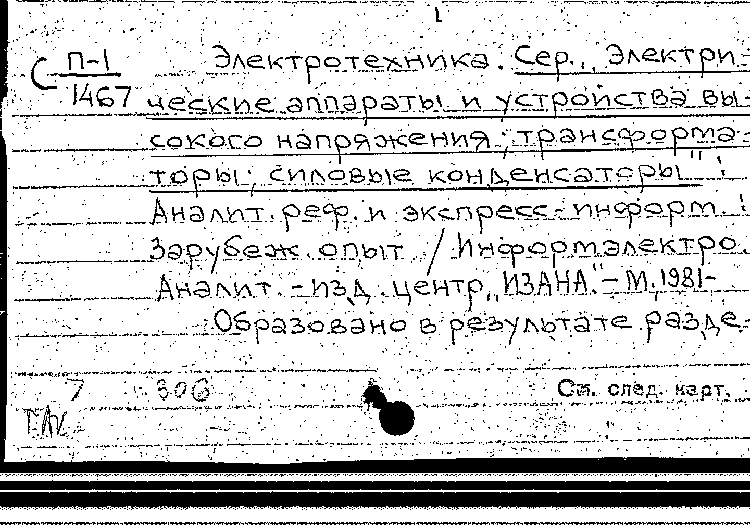 1
С П-1 Электротехника. Сер., Электри-
1467 ческие аппараты и устройства вы-
сокого напряжения; трансформа-
торы; силовые конденсаторы" :
Аналит. реф. и экспресс-информ. :
Зарубеж. опыт / Информэлектро.
Аналит.-изд. центр „ИЗАНА." – М., 1981-
Образовано в результате разде-
7 306 См. след. карт.